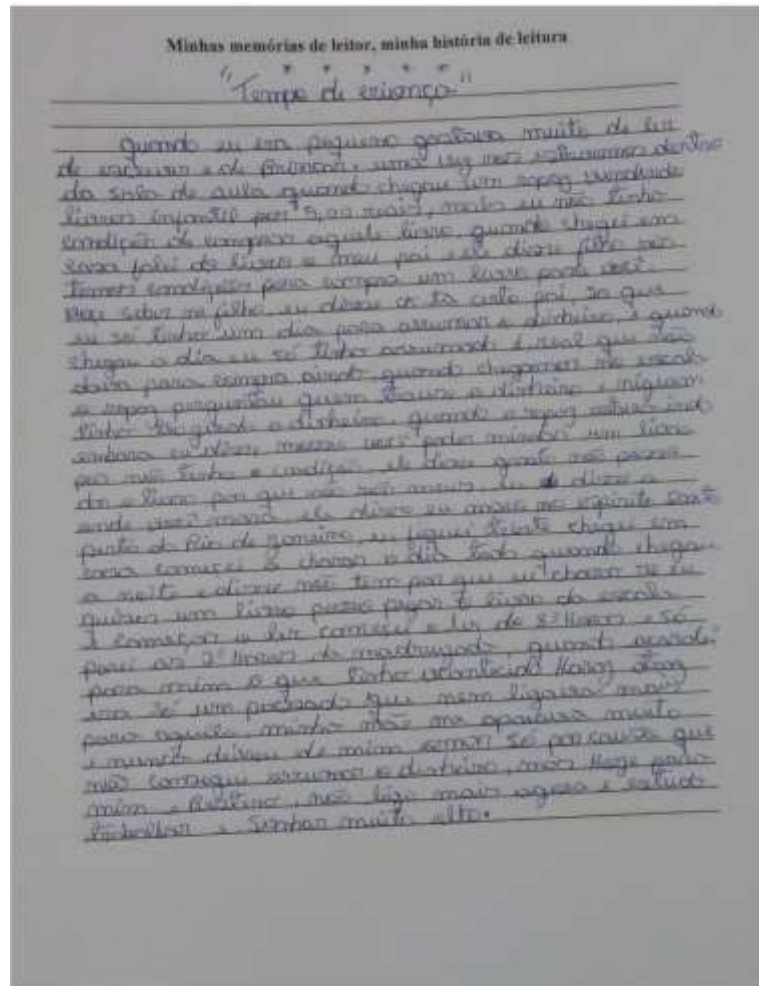 Minhas memórias de leitor, minha história de leitura
* * * * *
"Tempo de criança"
Quando eu era pequeno gostava muito de ler
de escrever e de Brincar, uma vez nos estavamos dentro
da sala de aula quando chegou um rapaz vendendo
livros infantil por 5,00 reais, mais eu não tinha
condição de compar aquele livro, quando cheguei em
casa falei do livro a meu pai e ele disse filho não
temos condições para compra um livro para você.
meu filho, eu disse ta certo pai, so que
eu só tinha um dia para arrumar o dinheiro, e quando
chegou o dia eu só tinha arrumado 1 real que não
dava para compra quando chegamos na escola
o rapaz perguntou quem trouxe o dinheiro e niguem
tinha o dinheiro, quando o rapaz estava indo
embora eu disse você podia mindar um livro
por não tinha a condição, ele disse garoto não posso
da o livro por que não são meus, eu disse a
onde você mora, ele disse eu moro no espirito santo
perto do Rio de janeiro, eu fiquei triste cheguei em
casa comecei a chorar o dia todo quando chegou
a noite e disse não tem por que eu chora se eu
quiser um livro posso pegar o livro da escola
e começar a ler comecei a ler de 8 Horas e só
parei as 2 Horas da madrugada, quando acordei
para mim o que tinha acontecido
era só um passado que nem ligava mais
para aquilo, minha mãe me apoiava muito
e nunca deixou de mim amar só por causa que
não consegui arrumar o dinheiro, mas Hoje para
mim não ligo mais agora é estuda
trabalhar e Sonhar muito alto.